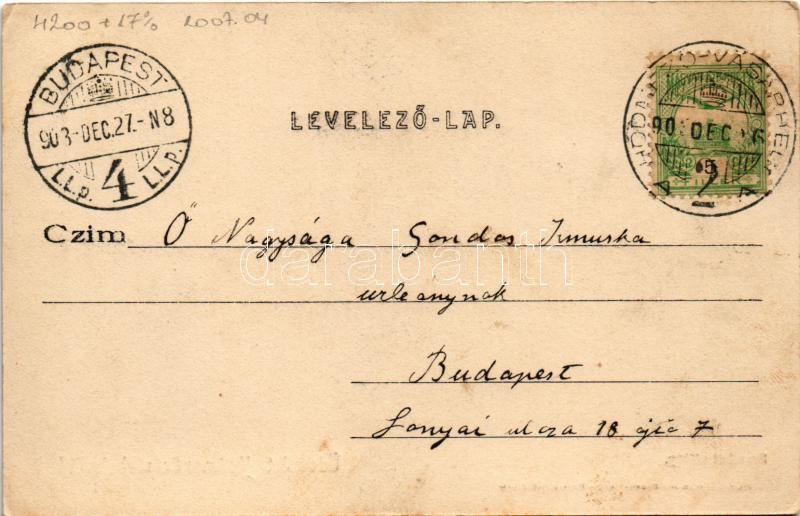 4200 + 27% 2007.04
BUDAPEST
903-DEC.27.-N8
LL.p. 4 LL.p.
LEVELEZŐ-LAP.
HÓDMEZŐ-VÁSÁRHELY
90 DEC. 26
5
A 2 A
Czim Ő Nagysága Gondos Irmuska
darabanth
urleánynak
Budapest
Lonyai utcza 18 ajtó 7